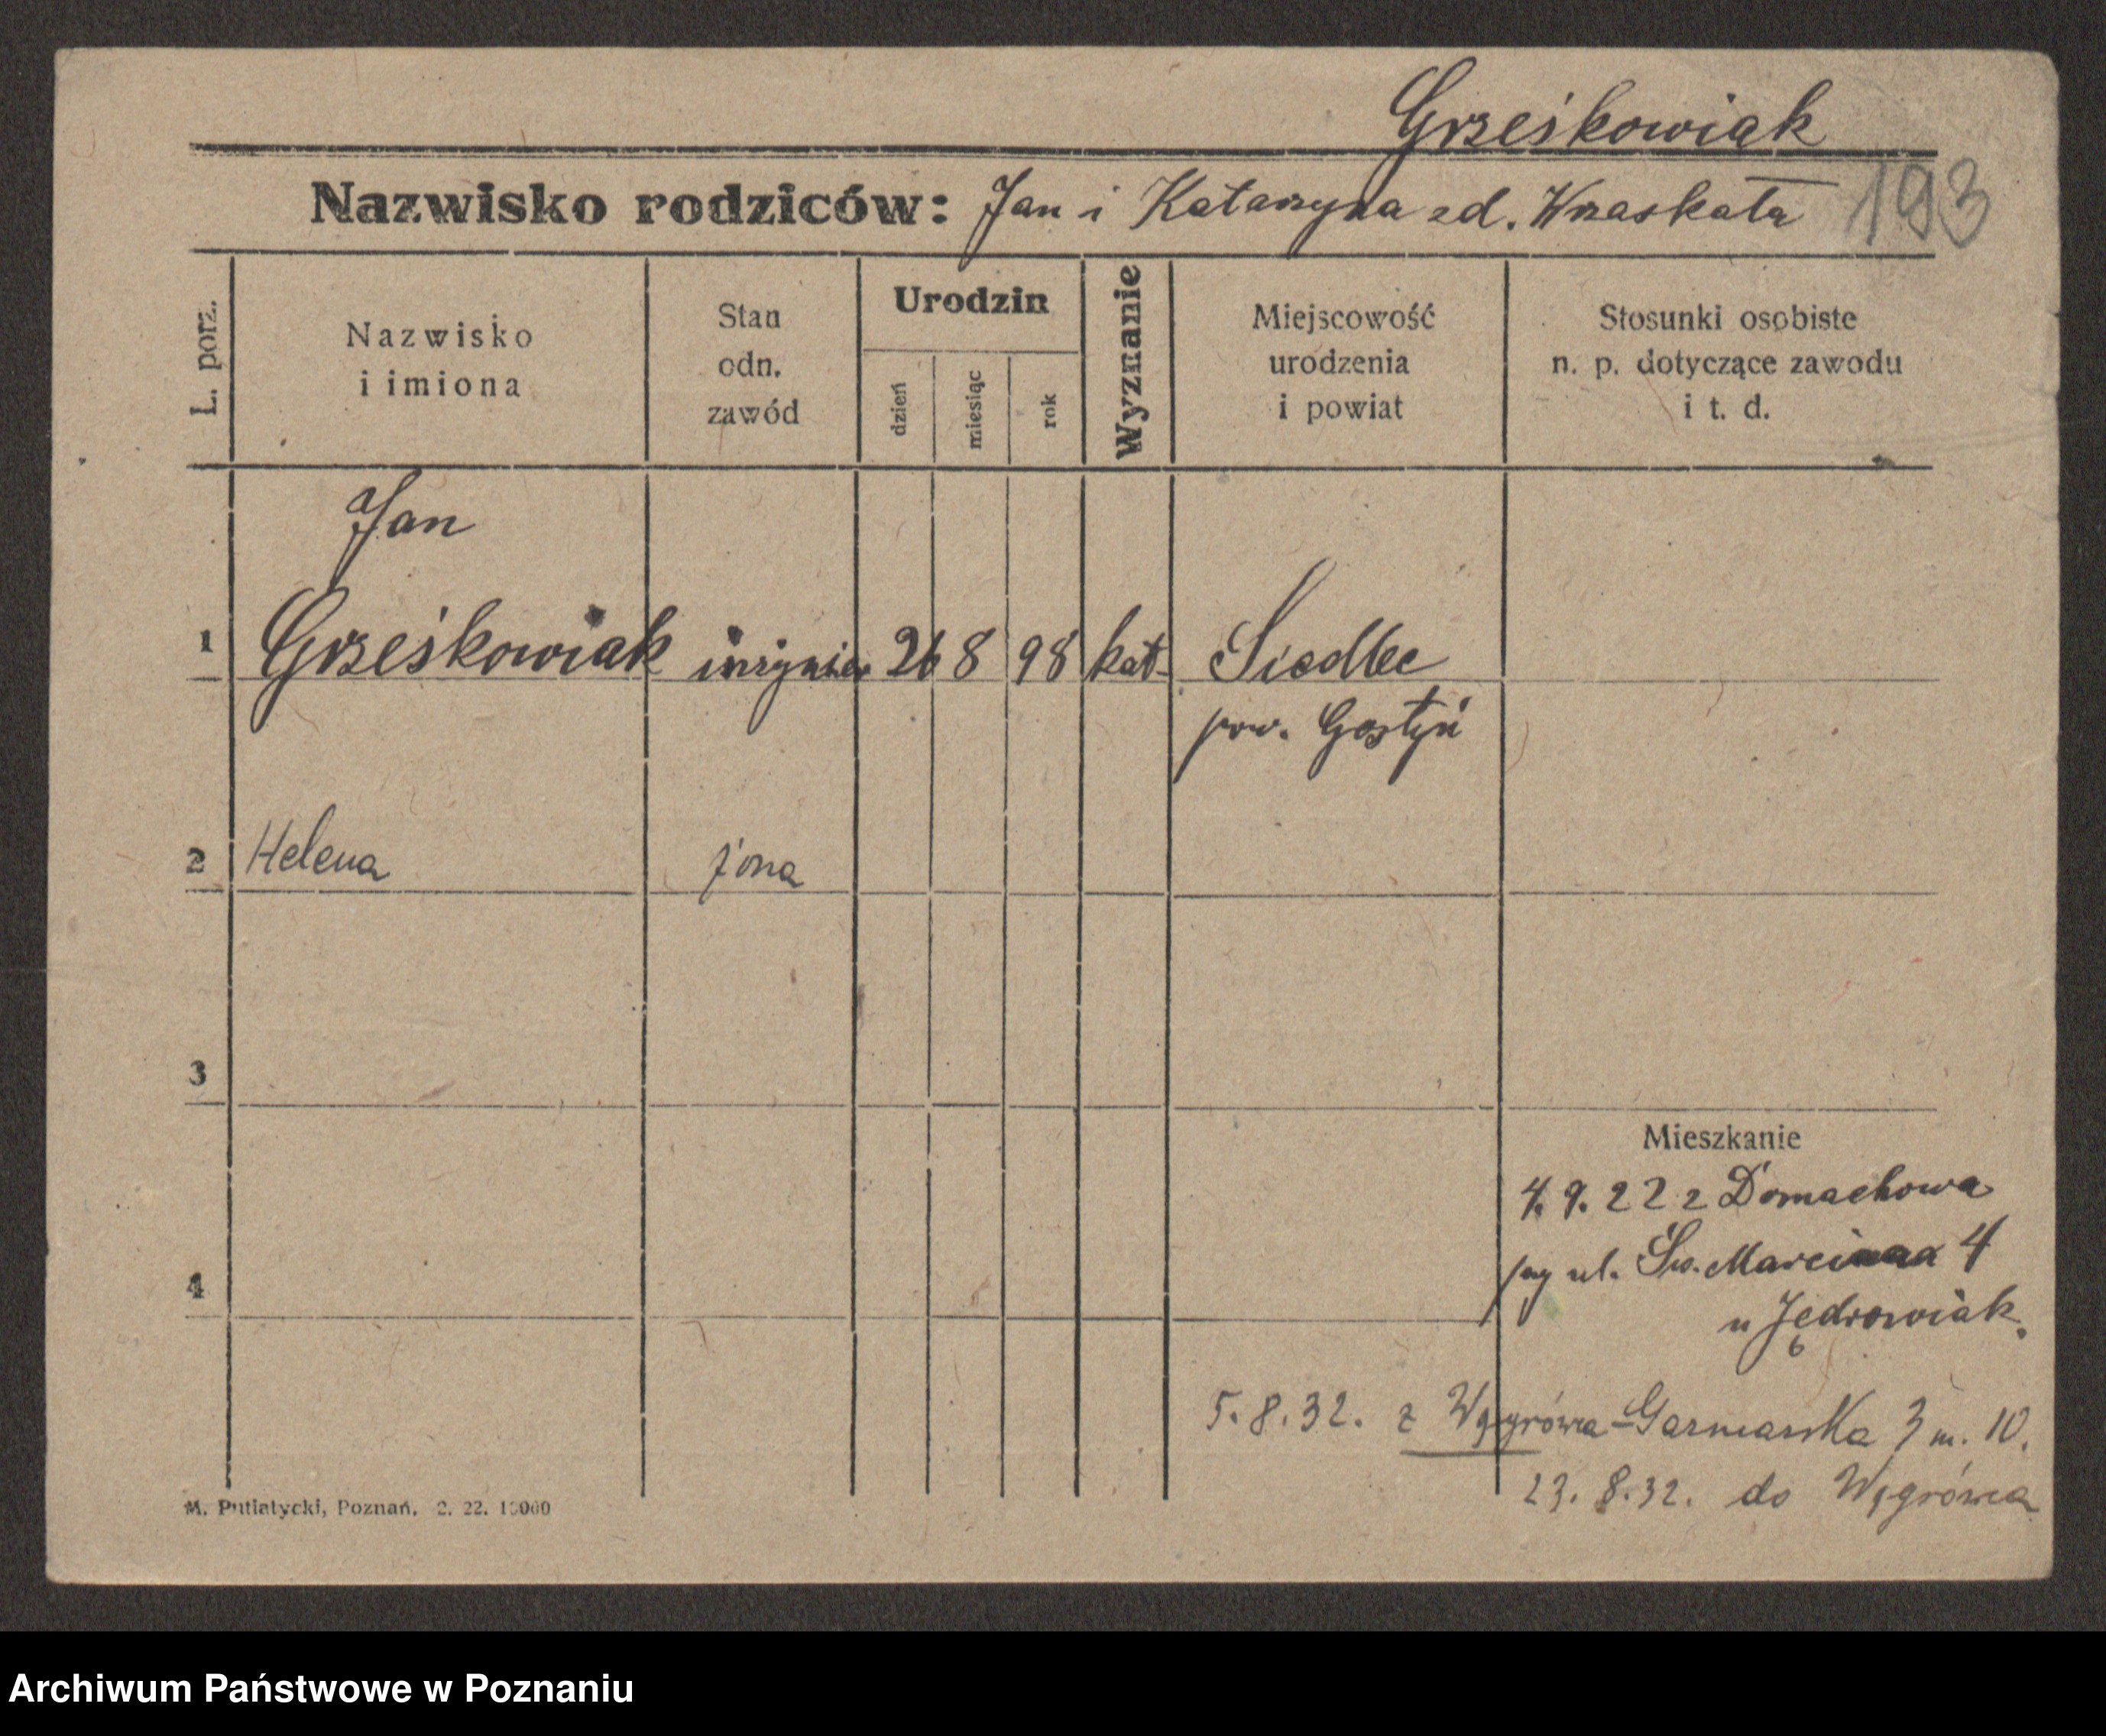 Grześkowiak
Nazwisko rodziców: Jan i Katarzyna zd. Wraskata 193
L. porz.
Nazwisko
i imiona
Stan
odn.
zawód
Urodzin
dzień
miesiąc
rok
Wyznanie
Miejscowość
urodzenia
i powiat
Stosunki osobiste
n. p. dotyczące zawodu
i t. d.
Jan
1 Grześkowiak inżynier 26 8 98 kat. Siedlec
pow. Gostyń
2 Helena żona
3
Mieszkanie
4. 9. 22 z Domachowa
ul. Św. Marcina 4
4
u Jędrowiak.
5. 8. 32. z Węgrówca - Garncarska 3 m. 10.
23. 8. 32. do Węgrówca
M. Putiatycki, Poznań. 2. 22. 10000
Archiwum Państwowe w Poznaniu